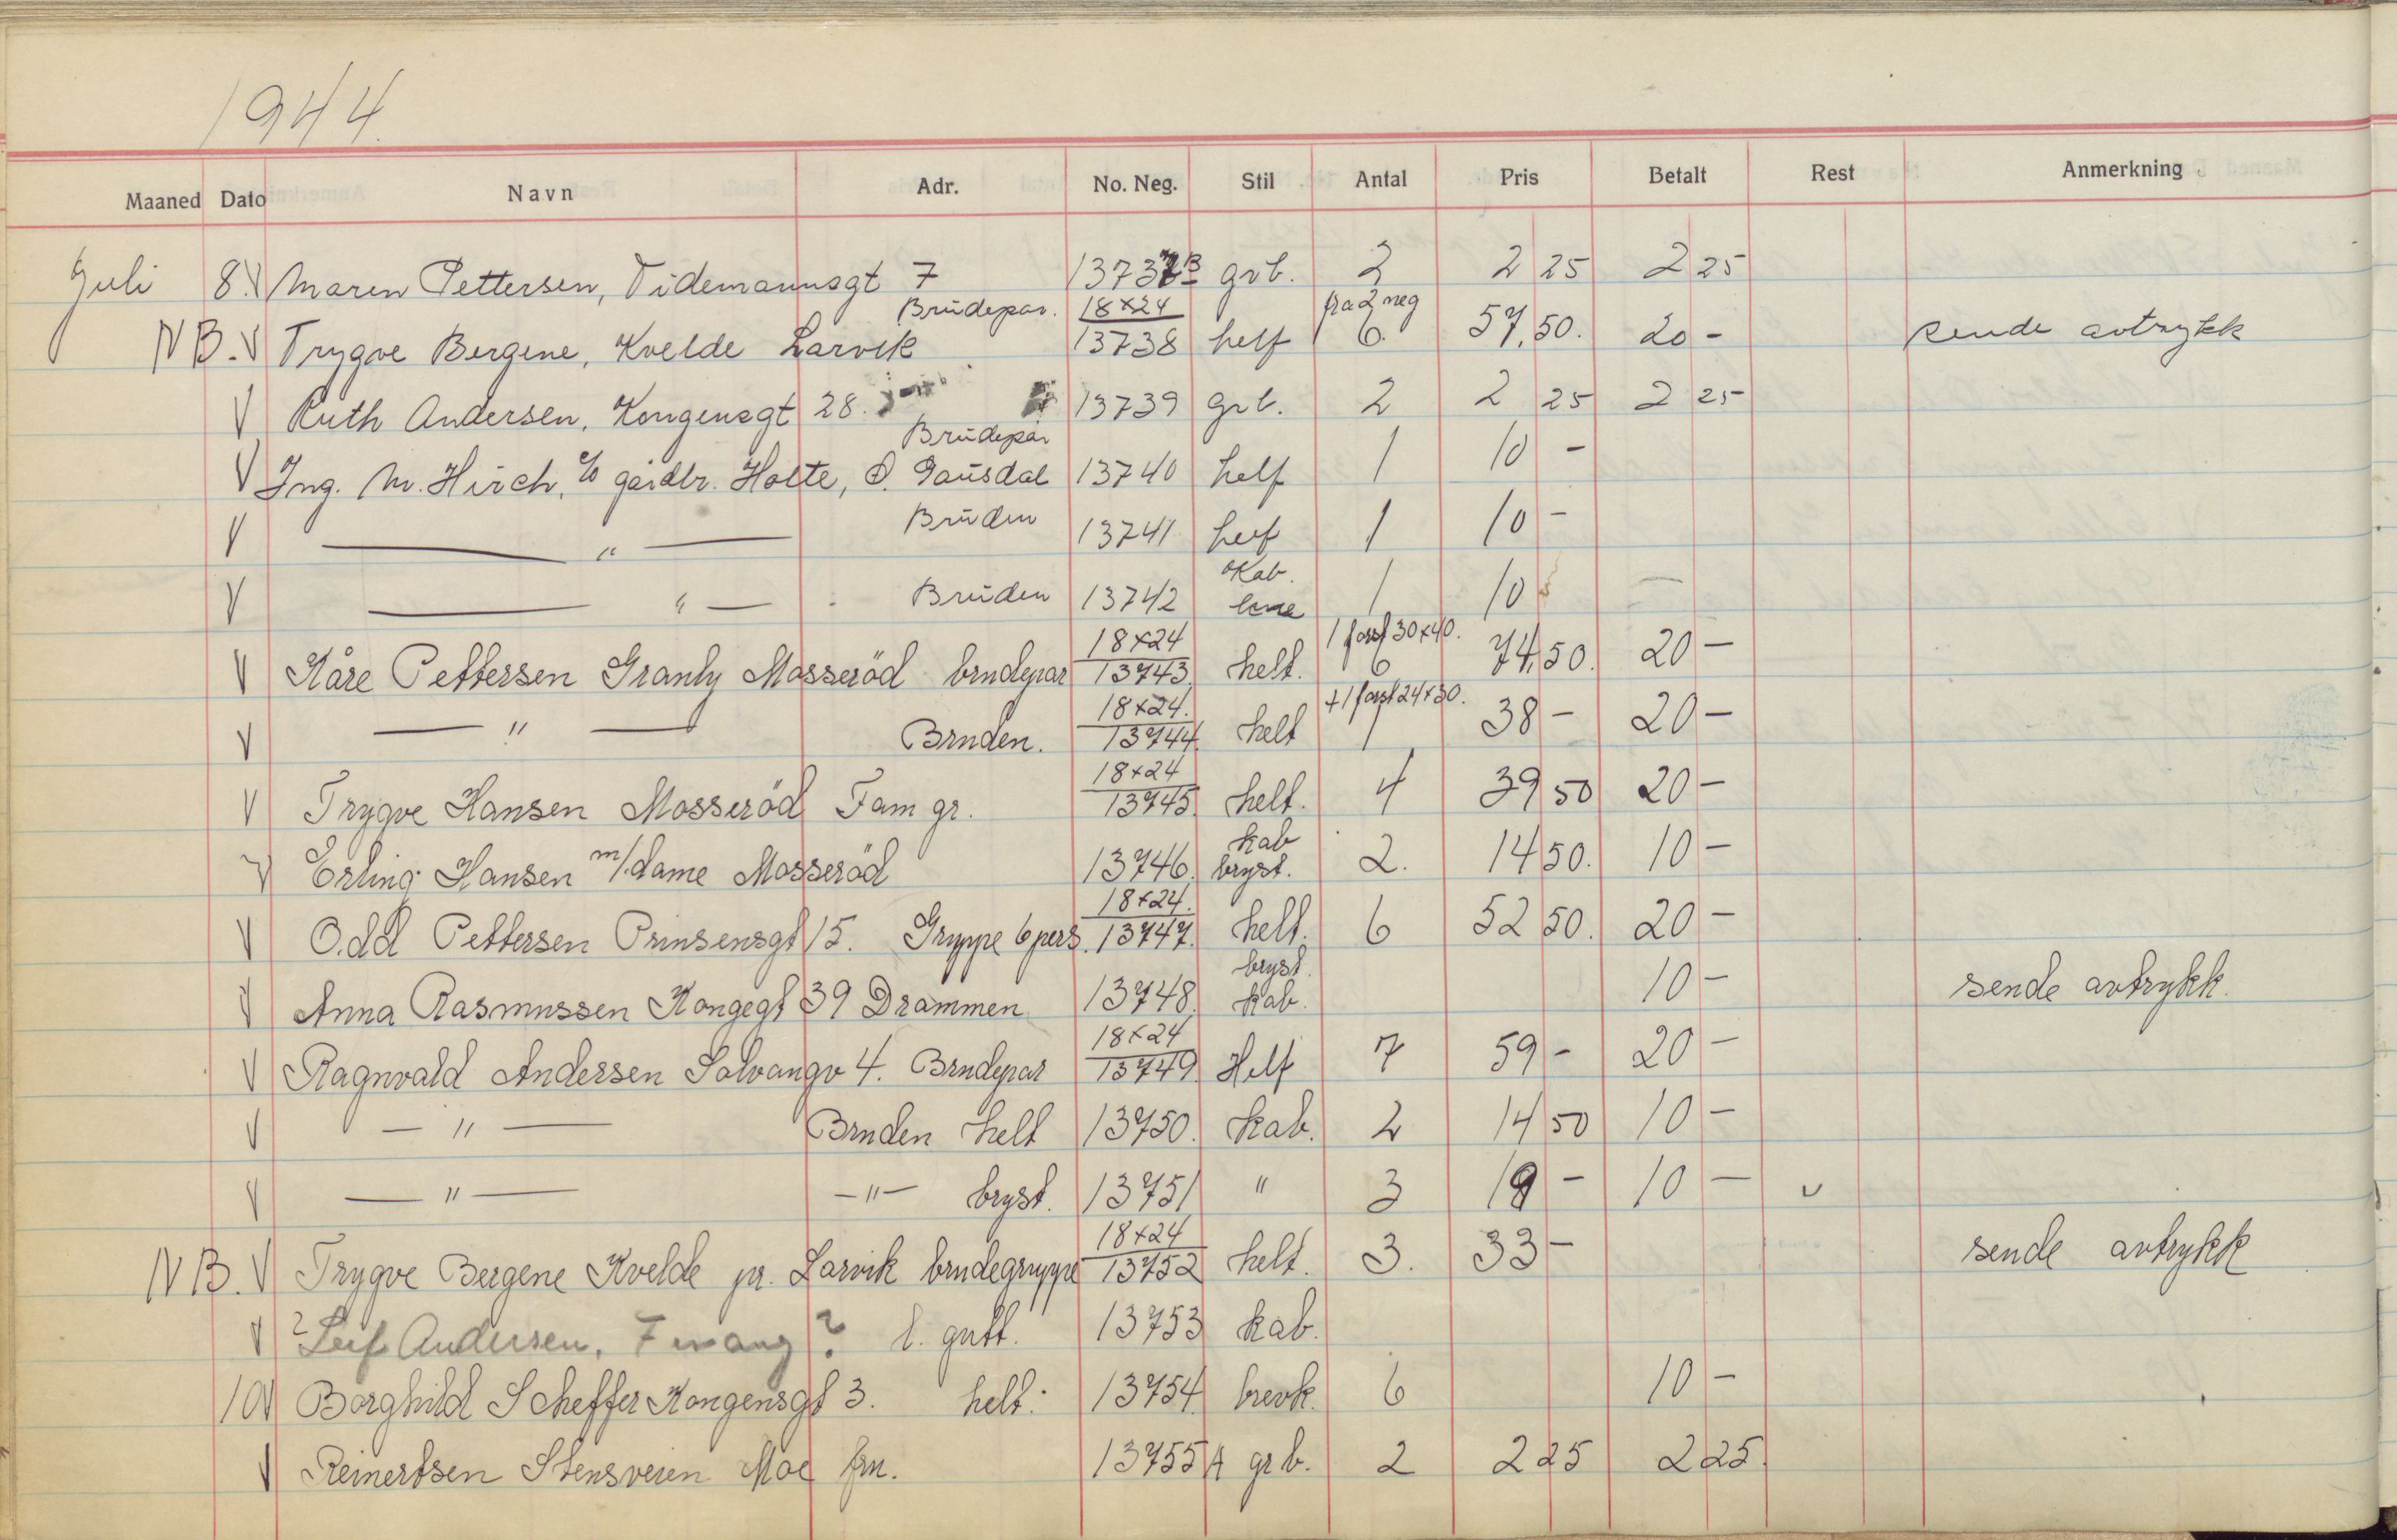 1944.
Maaned Dato Navn Adr. No. Neg. Stil Antal Pris Betalt Rest Anmerkning
Juli 8. V Maren Pettersen, Tidemannsgt 7 13737 B grb. 2 2 25 2 25
Brudepar. 18x24 fra 2 neg
NB. V Trygve Bergene, Kvelde Larvik 13738 helf 6. 57,50. 20 - sende avtrykk
V Ruth Andersen, Kongensgt 28. 13739 grb. 2 2 25 2 25
Brudepar
V Ing. M. Hirch, c/o gårdbr. Holte, Ø. Gausdal 13740 helf 1 10 -
V — " — Bruden 13741 helf 1 10 -
Kab.
V — " — Bruden 13742 kne 1 10
18x24 1 forst 30x40.
V Kåre Pettersen Granly Mosseröd brudepar 13743 helt. 6 74,50. 20 -
18x24. + 1 forst 24x30.
V — " — Bruden. 13744 helt 1 38 - 20 -
18x24
V Trygve Hansen Mosseröd Fam gr. 13745 helt. 4 39 50 20 -
kab
V Erling Hansen m/dame Mosseröd 13746. bryst. 2. 14 50. 10 -
18x24.
V Odd Pettersen Prinsensgt 15. Gruppe 6 pers. 13747. helt. 6 52 50. 20 -
bryst.
V Anna Rasmussen Kongegt 39 Drammen 13748. kab. 10 - sende avtrykk.
18x24
V Ragnvald Andersen Solvangv 4. Brudepar 13749 Helf 7 59 - 20 -
V — " — Bruden helt 13750. kab. 2 14 50 10 -
V — " — — " — bryst. 13751 " 3 19 - 10 -
18x24
NB. V Trygve Bergene Kvelde pr. Larvik brudegruppe 13752 helt. 3. 33 - sende avtrykk
V ? Leif Andersen, Fevang ? l. gutt. 13753 kab.
10 V Borghild Scheffer Kongensgt 3. helt. 13754 brevk. 6 10 -
V Reinertsen Stensveien Moe fru. 13755 A grb. 2 2 25 2 25.